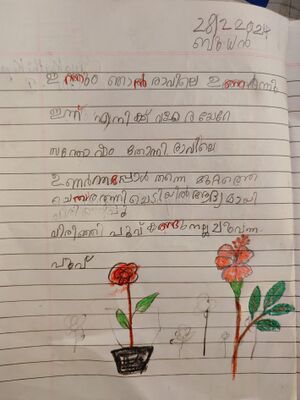 28/2 2024
ബുധൻ
ഇന്നും ഞാൻ രാവിലെ ഉണർന്നു
ഇന്ന് എനിക്ക് വളരെ
സന്തോഷം തോന്നി രാവിലെ
ഉണർന്നപ്പോൾ തന്നെ മുറ്റത്തെ
ചെമ്പരത്തി ചെടിയിൽ ആദ്യമായി
വിരിഞ്ഞ പൂവ് കണ്ടു നല്ല ചുവന്ന
പൂവ്